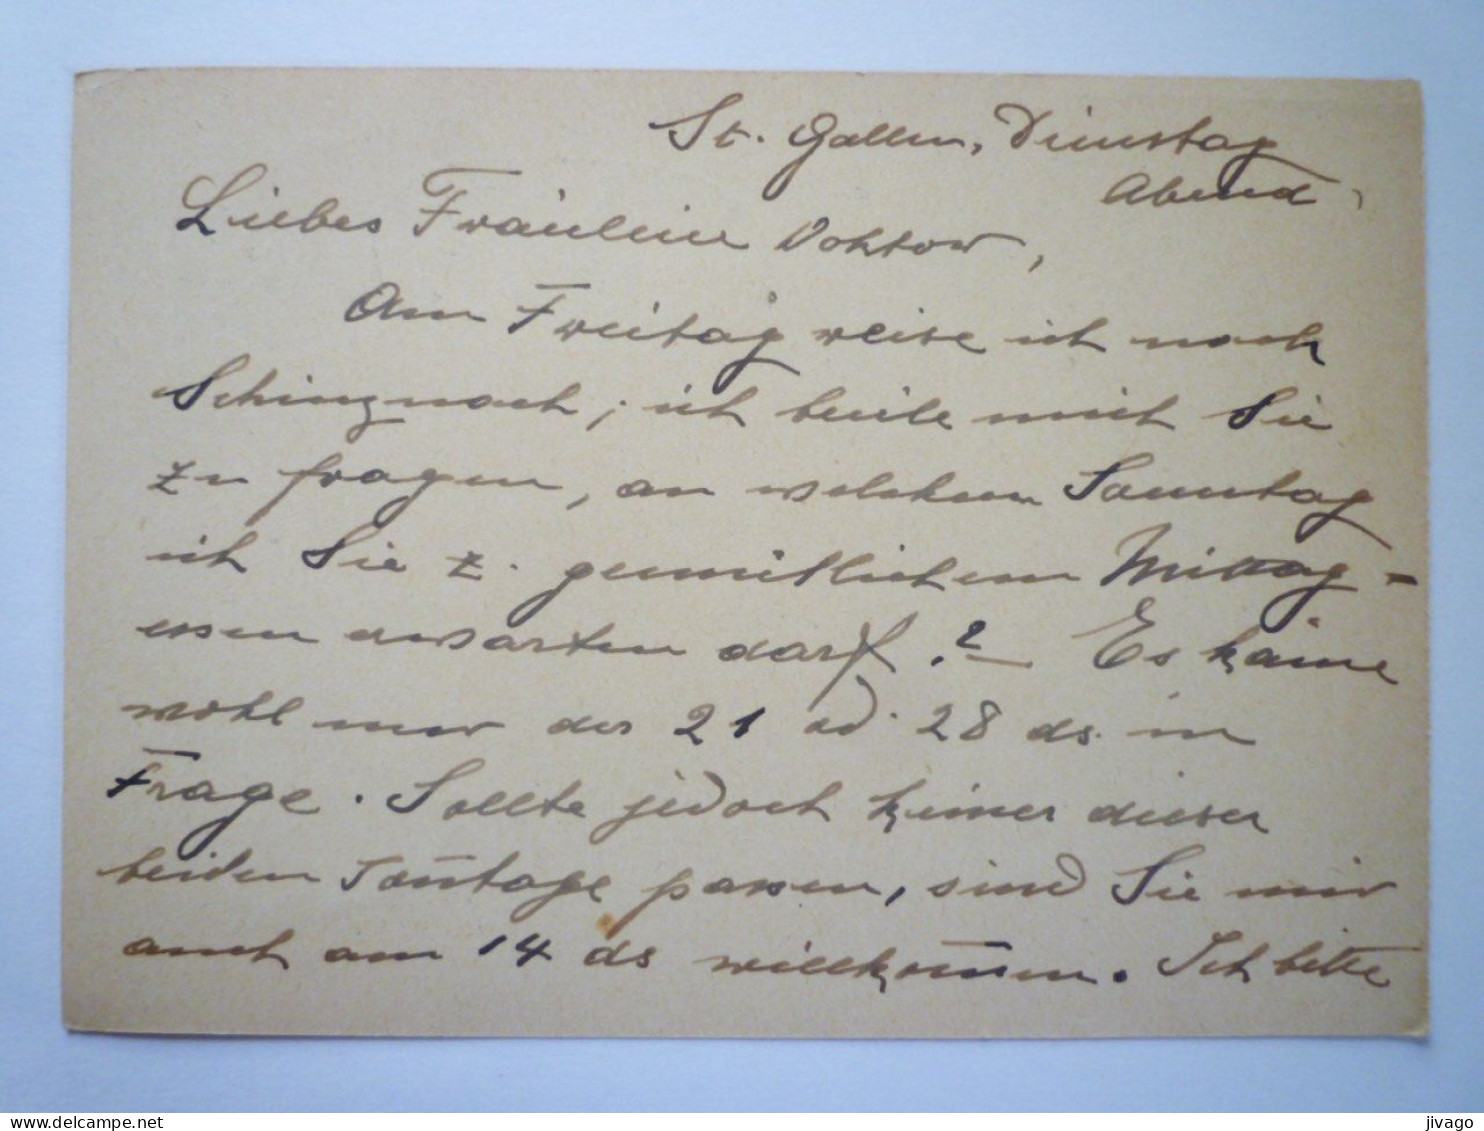 St. Gallen, Dienstag
Abend,
Liebes Fräulein Doktor,
Am Freitag reise ich nach
Schinznach; ich beeile mich Sie
zu fragen, an welchem Sonntag
ich Sie z. gemütlichem Mittag-
essen erwarten darf.? — Es käme
wohl nur der 21 od. 28 ds. in
Frage. Sollte jedoch keiner dieser
beiden Son̄tage passen, sind Sie mir
auch am 14 ds willkom̄en. Ich bitte
www.delcampe.net
jivago